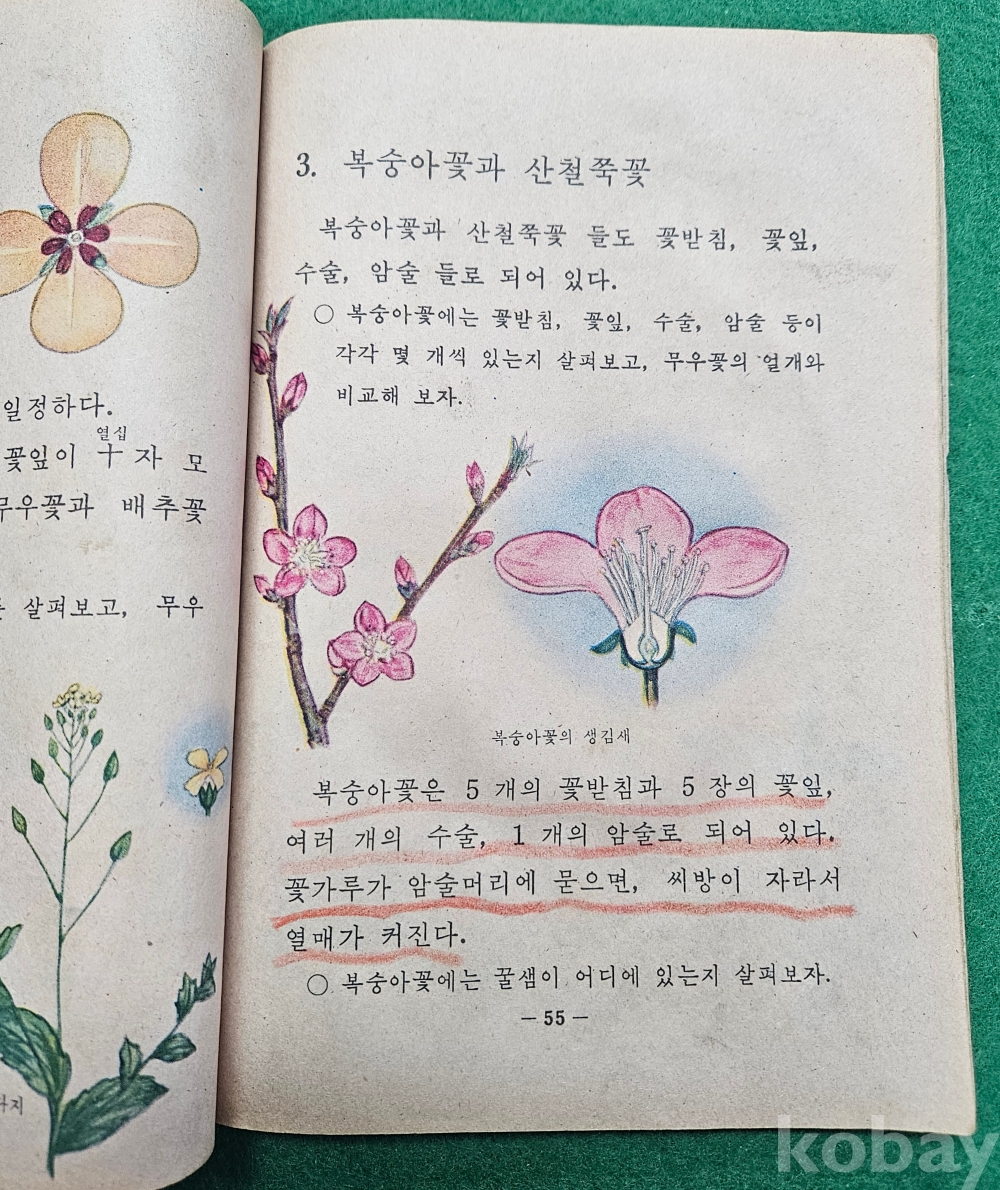 일정하다.
열십
꽃잎이 十자 모
무우꽃과 배추꽃
살펴보고, 무우
3. 복숭아꽃과 산철쭉꽃
복숭아꽃과 산철쭉꽃 들도 꽃받침, 꽃잎,
수술, 암술 들로 되어 있다.
○ 복숭아꽃에는 꽃받침, 꽃잎, 수술, 암술 등이
각각 몇 개씩 있는지 살펴보고, 무우꽃의 얼개와
비교해 보자.
복숭아꽃의 생김새
복숭아꽃은 5 개의 꽃받침과 5 장의 꽃잎,
여러 개의 수술, 1 개의 암술로 되어 있다.
꽃가루가 암술머리에 묻으면, 씨방이 자라서
열매가 커진다.
○ 복숭아꽃에는 꿀샘이 어디에 있는지 살펴보자.
— 55 —
kobay